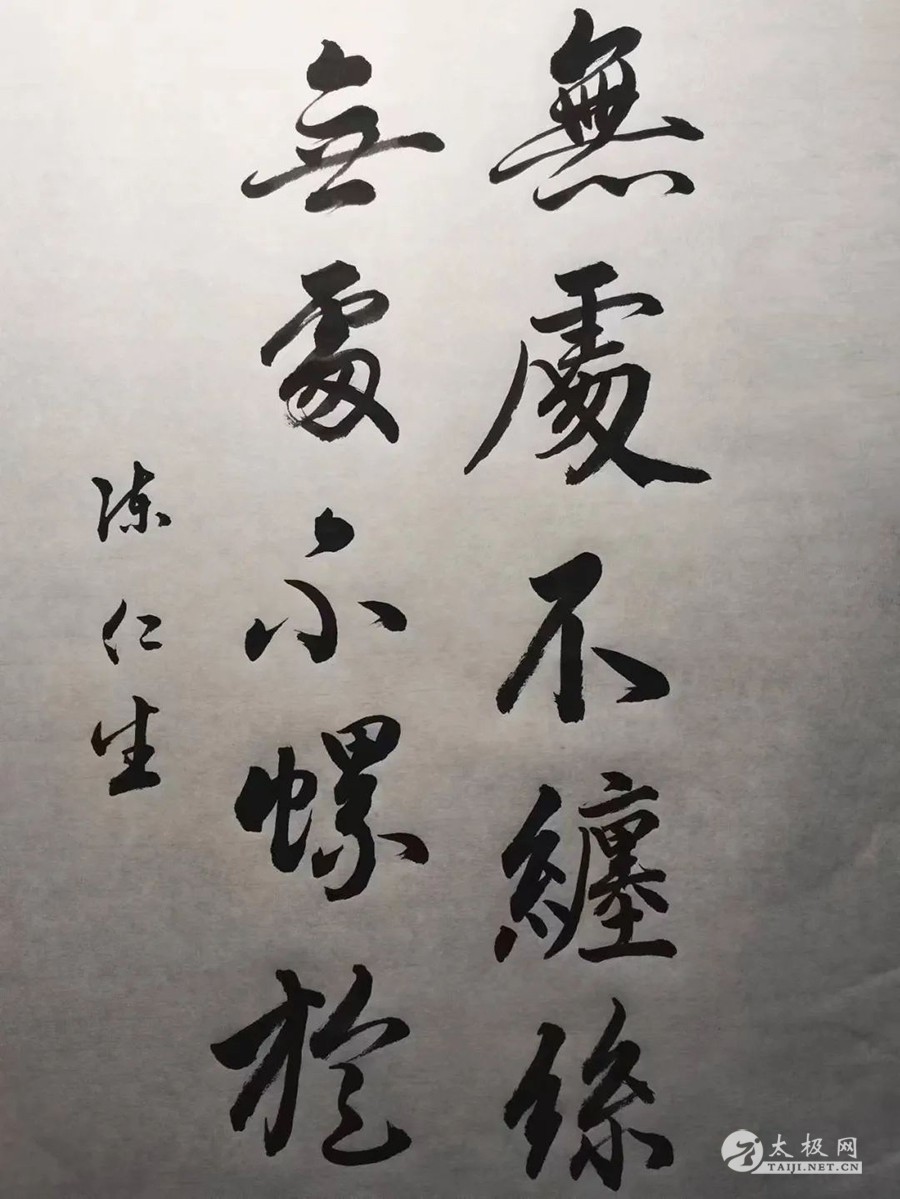 無處不纏絲
無處不螺旋
陳仁生
太极网
TAIJI.NET.CN